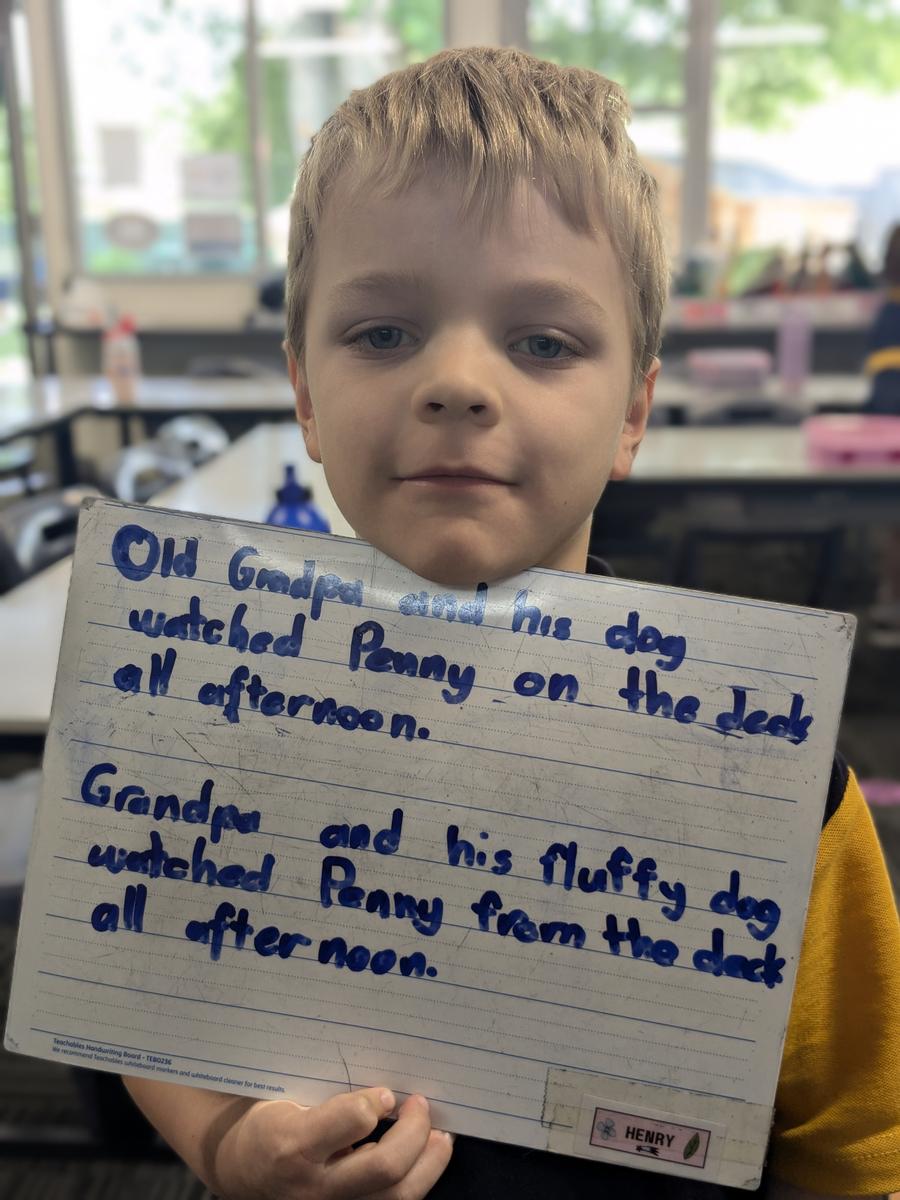 Old Gradpa and his dog
watched Penny on the deck
all afternoon.
Grandpa and his fluffy dog
watched Penny from the deck
all afternoon.
Teachables Handwriting Board - TEB0236
We recommend Teachables whiteboard markers and whiteboard cleaner for best results.
HENRY